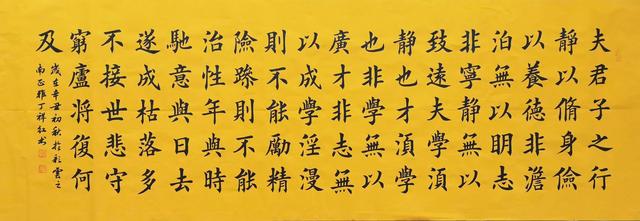 夫君子之行
静以脩身儉
以養德非澹
泊無以明志
非寧静無以
致遠夫學湏
静也才湏學
也非學無以
廣才非志無
以成學淫漫
則不能勵精
險躁則不能
治性年與時
馳意與日去
遂成枯落多
不接世悲守
窮廬將復何
及
歲在辛丑初秋於彩雲之
南丁祥红书